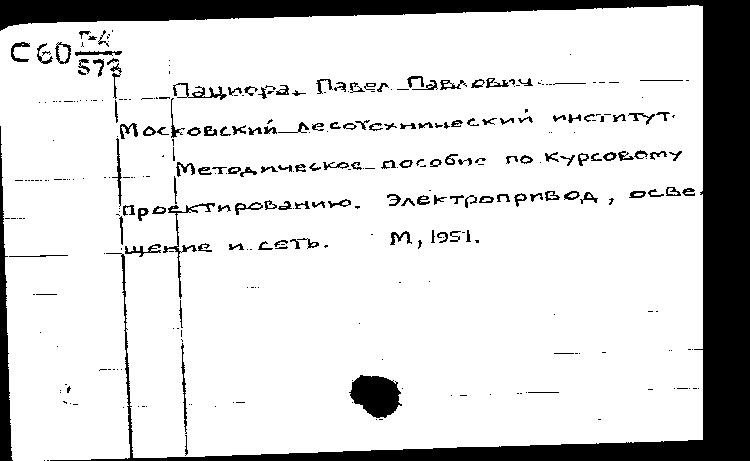 С60 Г-4/573
Пациора, Павел Павлович.
Московский лесотехнический институт.
Методическое пособие по курсовому
проектированию. Электропривод, осве-
щение и сеть. М, 1951.